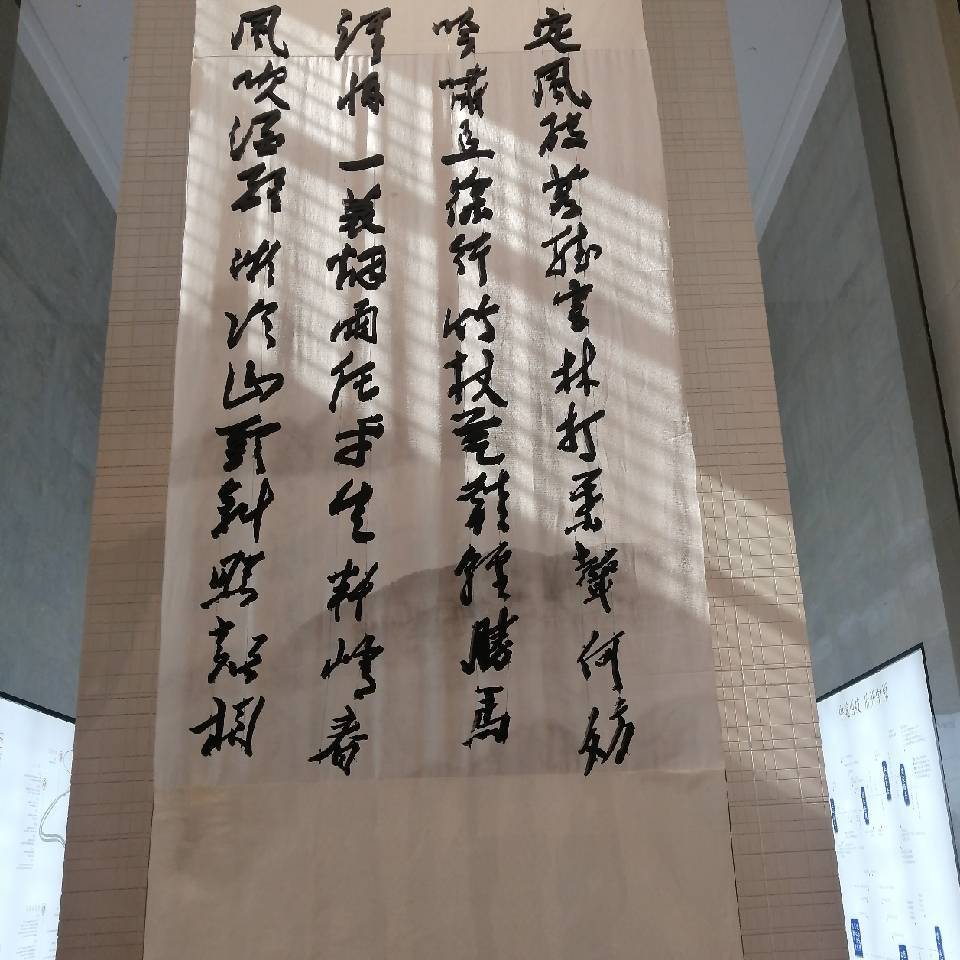 定風波莫聽穿林打葉聲何妨
吟嘯且徐行竹杖芒鞋輕勝馬
誰怕一蓑烟雨任平生料峭春
風吹酒醒微冷山頭斜照却相